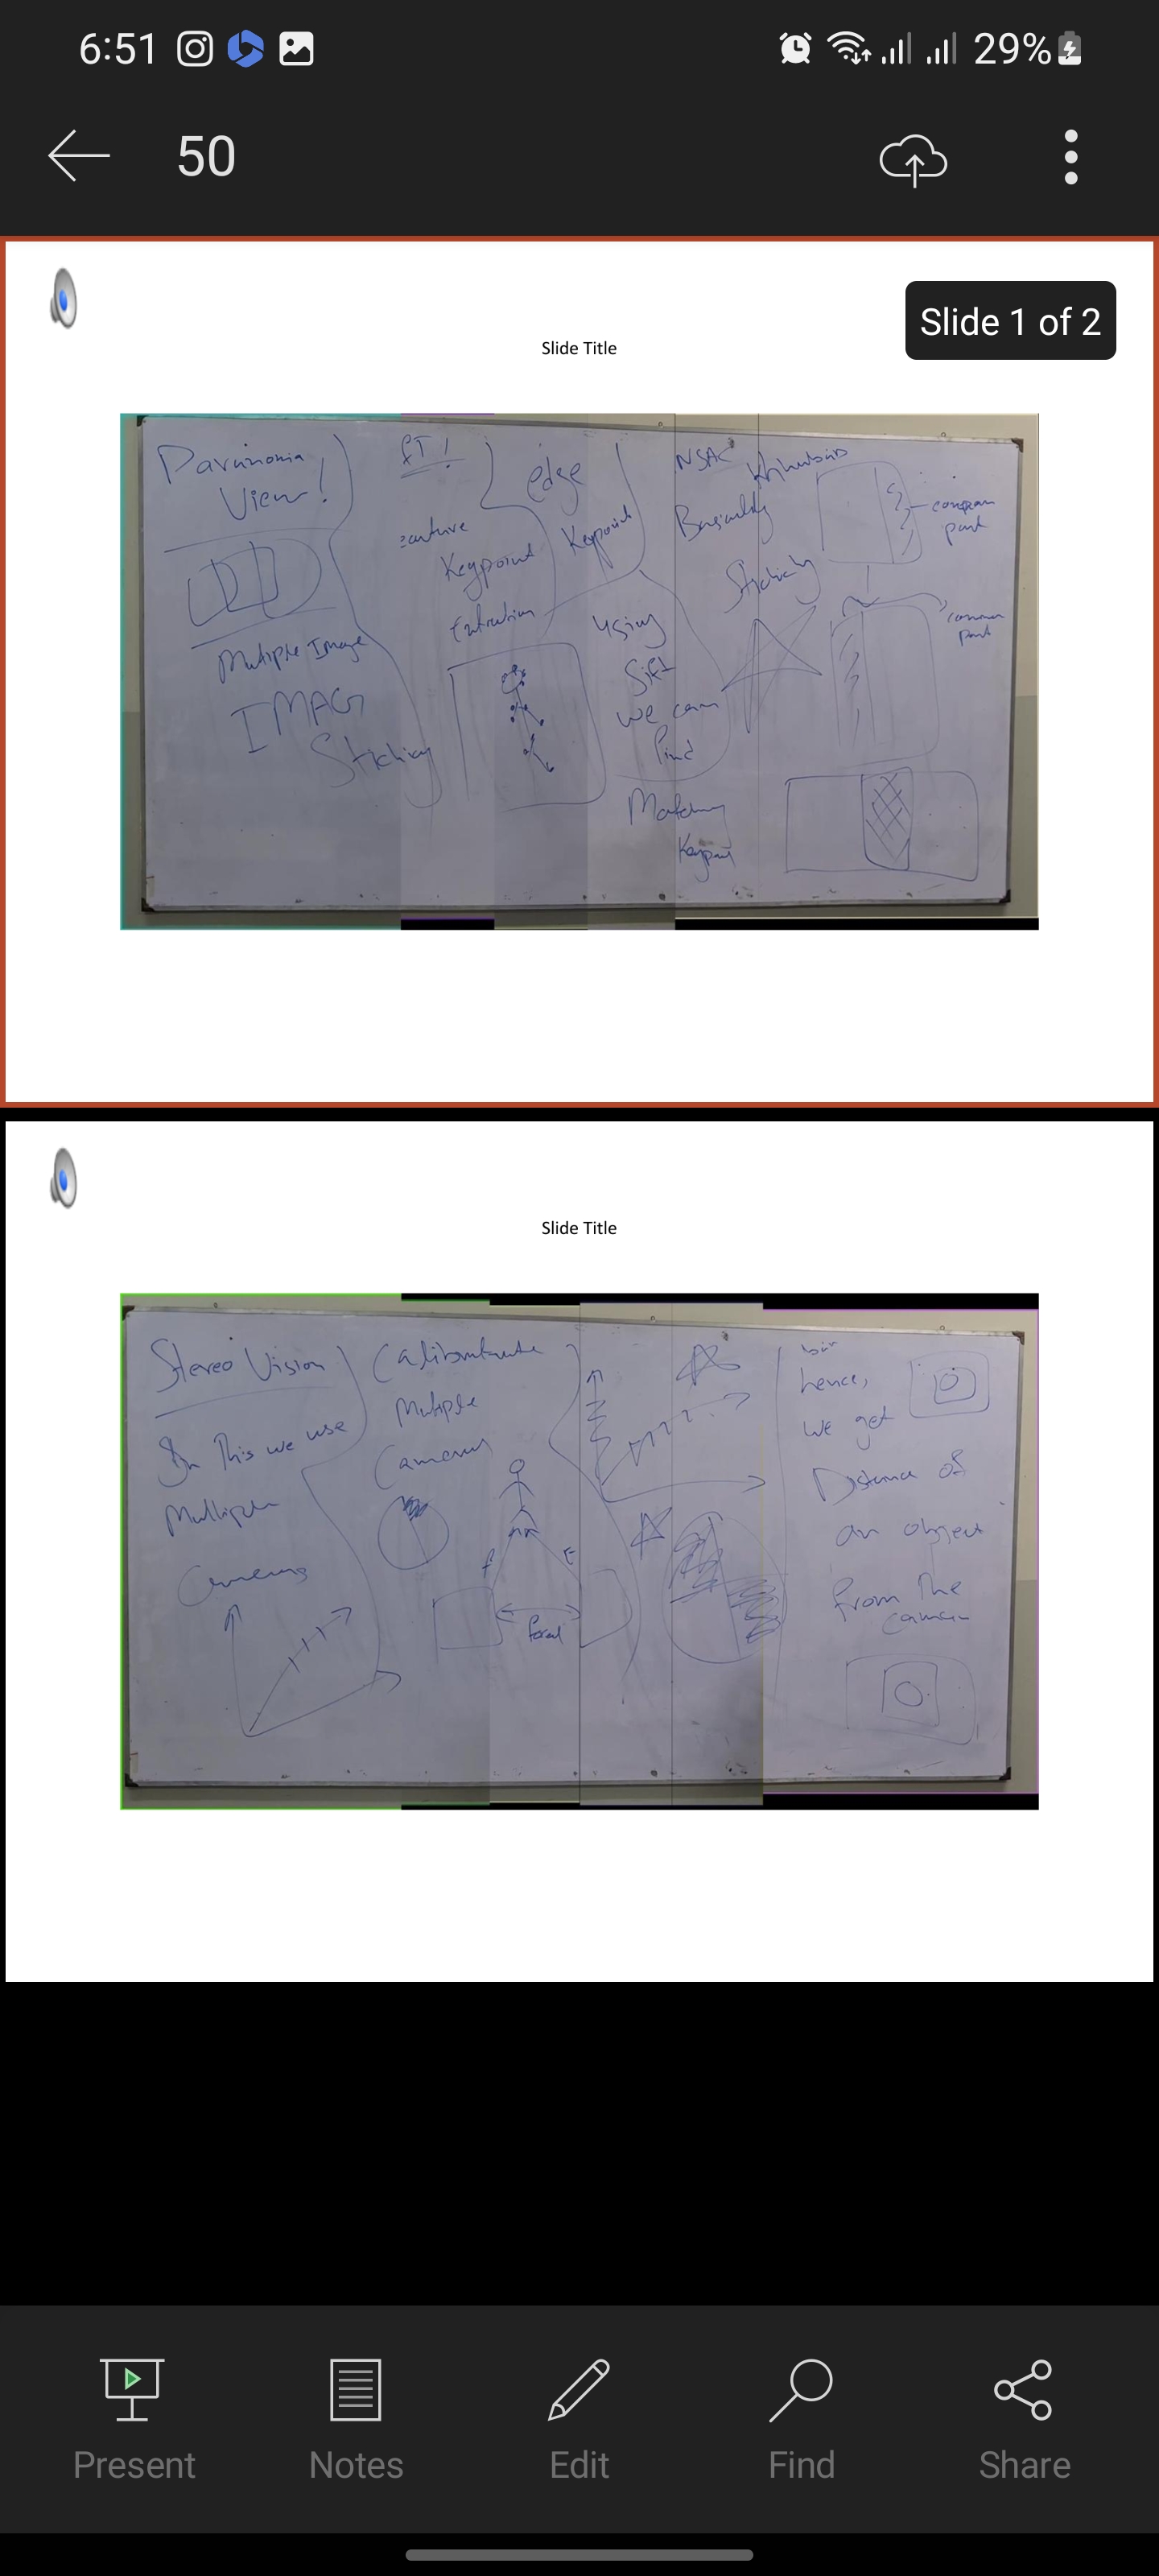 6:51
29%
50
Slide 1 of 2
Slide Title
Panunomia
View!
Mutiple Image
IMAG
Stiching
fT!
eature
Keypoint
Extration
edge
Keypoint
using
Sift
we can
find
Matching
Keypoi
NSAC
Basically
Stiching
common
part
common
part
Slide Title
Stereo Vision
In This we use
Multiple
Cameras
Mutiple
Cameras
focal
hence,
we get
Distance of
an object
from The
camera
Present
Notes
Edit
Find
Share